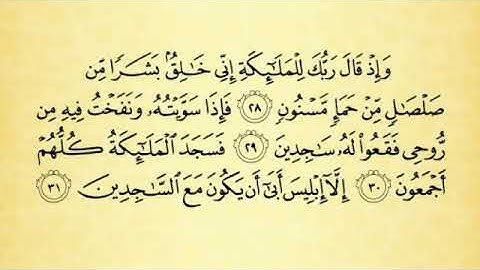 وَإِذْ قَالَ رَبُّكَ لِلْمَلَٰٓئِكَةِ إِنِّى خَٰلِقٌۢ بَشَرًا مِّن
صَلْصَٰلٍ مِّنْ حَمَإٍ مَّسْنُونٍ ٢٨ فَإِذَا سَوَّيْتُهُۥ وَنَفَخْتُ فِيهِ مِن
رُّوحِى فَقَعُوا۟ لَهُۥ سَٰجِدِينَ ٢٩ فَسَجَدَ الْمَلَٰٓئِكَةُ كُلُّهُمْ
أَجْمَعُونَ ٣٠ إِلَّآ إِبْلِيسَ أَبَىٰٓ أَن يَكُونَ مَعَ السَّٰجِدِينَ ٣١